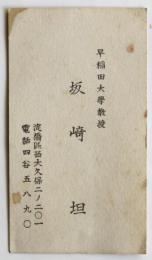 早稲田大學教授
坂崎坦
淀橋區西大久保二ノ二〇一
電話四谷五八九〇